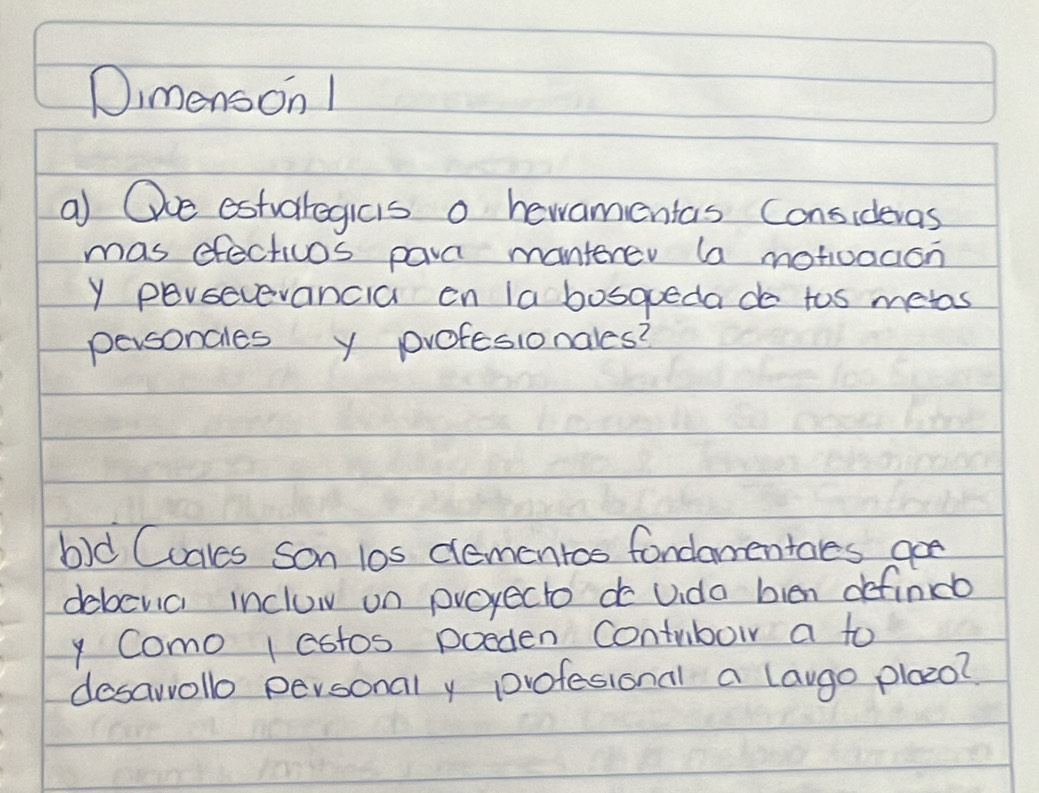 Dimensón 1
a) Que estrategias o herramientas Consideras
mas efectivos para mantener la motivación
y perseverancia en la busqueda de tus metas
personales y profesionales?
b)¿ Cuales son los elementos fundamentales que
deberia incluir un proyecto de vida bien definido
y Como , estos pueden Contribuir a tu
desarrollo personal y profesional a largo plazo?